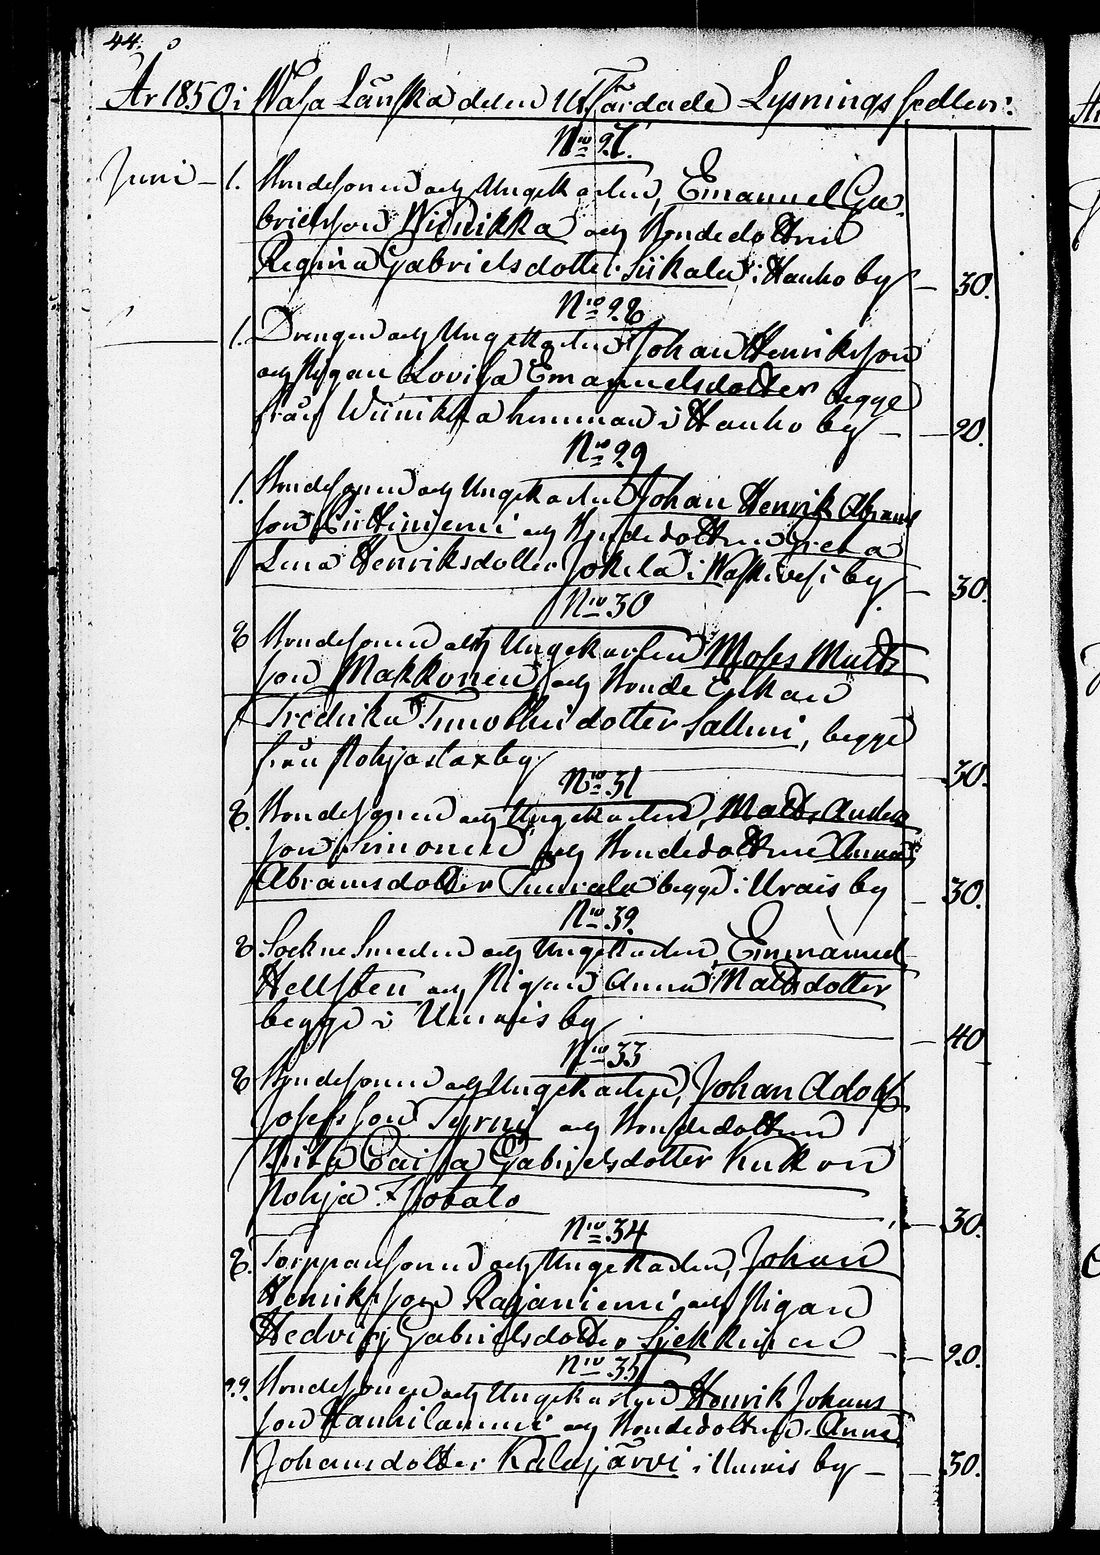 44.
År 1850 i Wasa Länska delen Utfärdade Lysnings sedlar:
No 27.
Juni – 1. Bondesonen och Ungekarlen, Emanuel Ga-
brielsson Wiinikka och Bondedottren
Regina Gabrielsdotter Siikala i Hanho by – 30.
No 28
1. Drengen och Ungekarlen Johan Henriksson
och Pigan Lovisa Emanuelsdotter begge
från Wiinikka hemman i Hanho by – 20.
No 29
1. Bondesonen och Ungekarlen Johan Henrik Abrams
son och Bondedottren Greta
Lena Henriksdotter Jokela i Waskivesi by – 30.
No 30
8 Bondesonen och Ungekarlen Moses Matts
son Makkonen och Bonde Enkan
Fredrika Timothei dotter Sallmi, begge
från Pohjaslax by 30.
No 31
8. Bondesonen och Ungekarlen, Matts Anders
son Simonen och Bondedottren Anna
Abramsdotter begge i Urais by – 30.
No 32.
8. Sockne Smeden och Ungekarlen, Emmanuel
Hellsten och Pigan Anna Mattsdotter
begge i Urais by 40
No 33
8 Bondesonen och Ungekarlen, Johan Adolf
Josefsson Tyrni och Bondedottren
Brita Caisa Gabrielsdotter
Pohja 30.
No 34
8. Torpparsonen och Ungekarlen, Johan
Henriksson Rajaniemi och Pigan
Hedvig Gabrielsdotter Siekkinen – 20.
No 35
22. Bondesonen och Ungekarlen Henrik Johans
son Hankilammi och Bondedottren Anna
Johansdotter Kalajärvi i Urais by – 30.